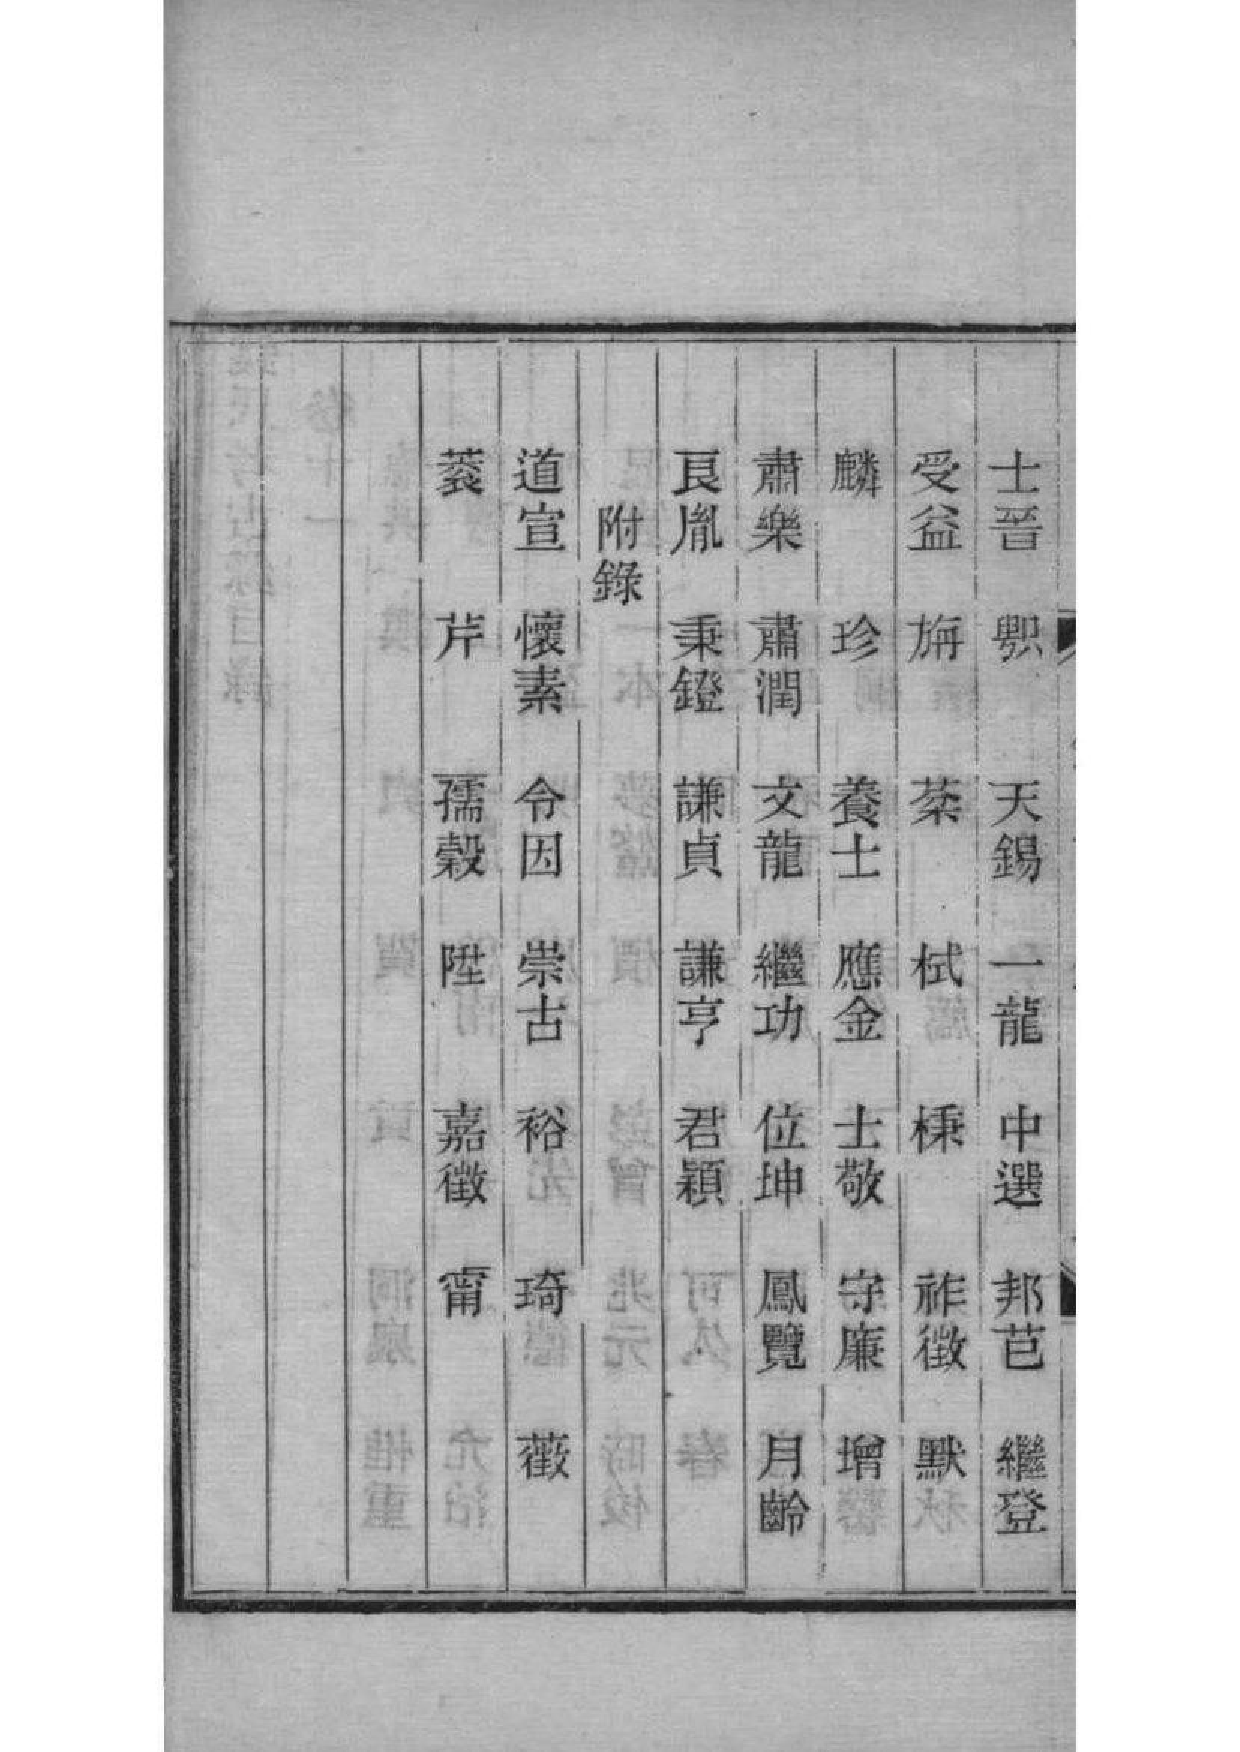 士晉 天錫 一龍 中選 邦芑 繼登
受益 旃 棻 栻 棅 祚徵 默
麟 珍 養士 應金 士敬 守廉 增
肅樂 肅潤 文龍 繼功 位坤 鳳覽 月齡
艮胤 秉鐙 謙貞 謙亨 君穎
附錄
道宣 懷素 令因 崇古 裕 琦 薇
菼 芹 孺穀 陞 嘉徵 甯